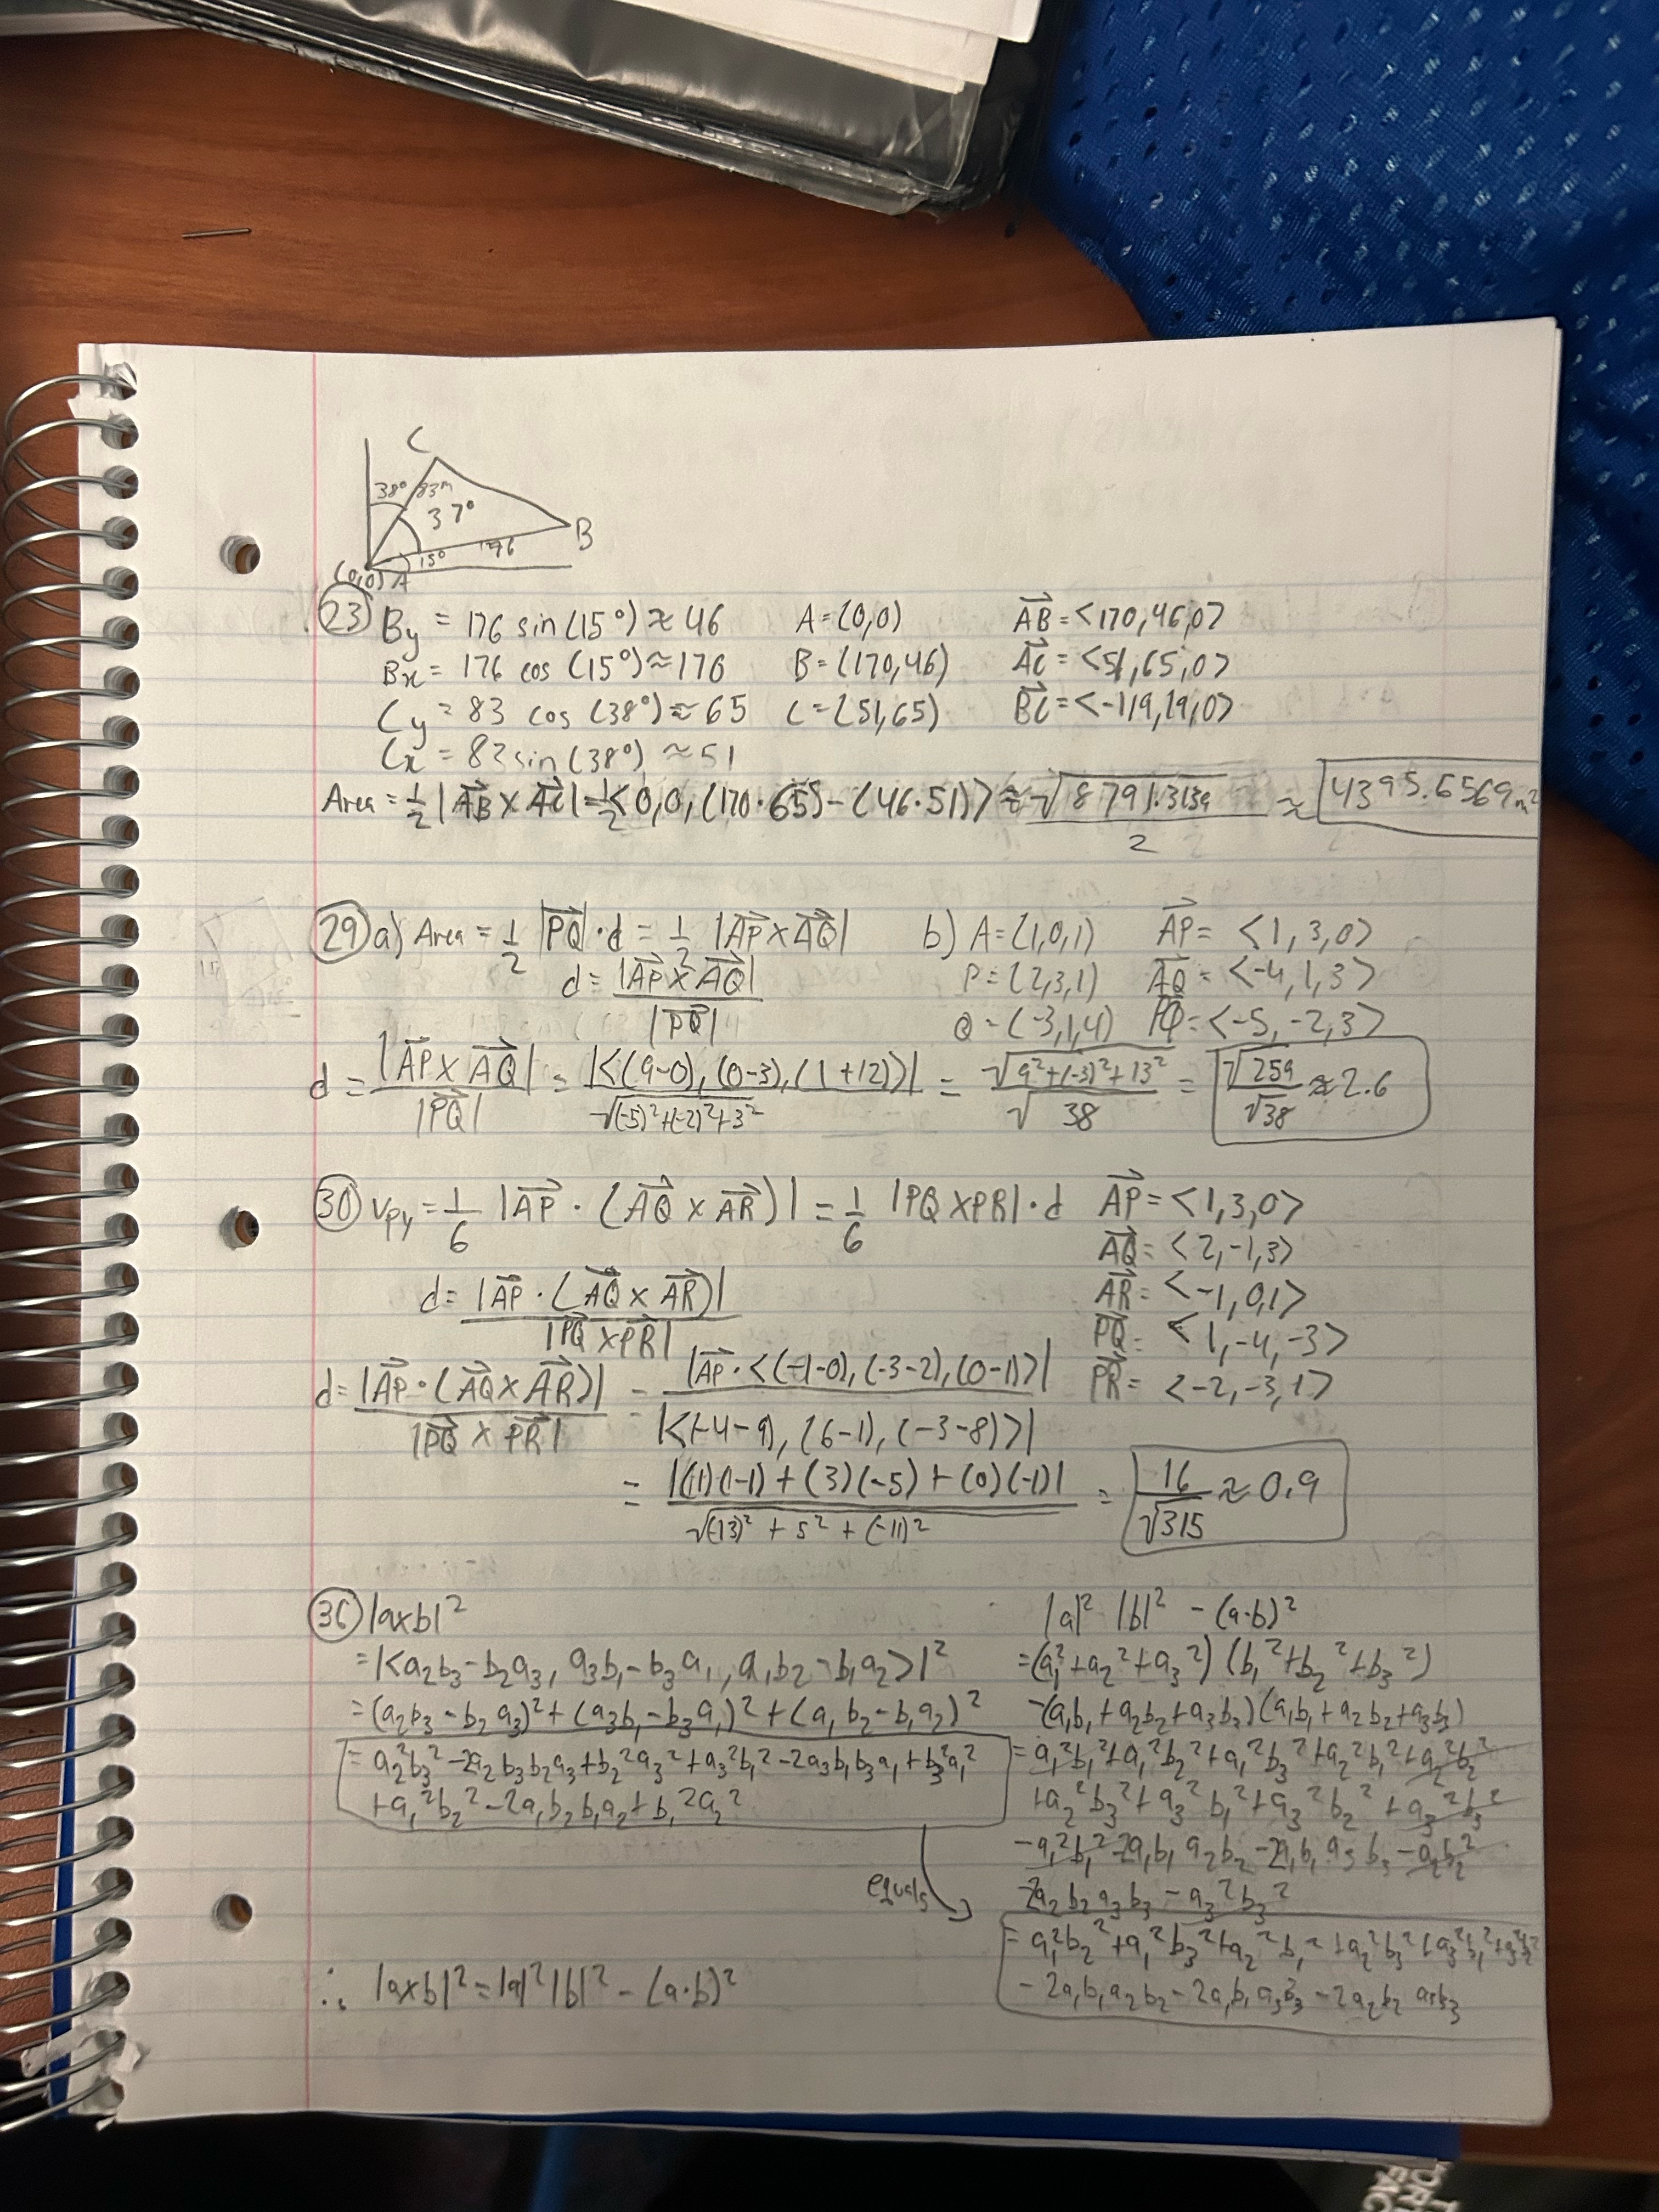 C
38° 83m
37°
B
15° 176
(0,0) A
(23) By = 176 sin(15°) ≈ 46 A=(0,0) AB = <170,46,0>
Bx = 176 cos (15°) ≈ 170 B=(170,46) AC = <51,65,0>
Cy = 83 cos (38°) ≈ 65 C=(51,65) BC = <-119,19,0>
Cx = 83 sin(38°) ≈ 51
Area = 1/2 |AB × AC| = 1/2 <0,0,(170·65)-(46·51)> ≈ √8791.3139 / 2 ≈ 4395.6569 m²
(29) a) Area = 1/2 |PQ|·d = 1/2 |AP × AQ| b) A=(1,0,1) AP = <1,3,0>
d = |AP × AQ| / |PQ| P=(2,3,1) AQ = <-4,1,3>
Q=(-3,1,4) PQ = <-5,-2,3>
d = |AP × AQ| / |PQ| = |<(9-0),(0-3),(1+12)>| / √(-5)²+(-2)²+3² = √9²+(-3)²+13² / √38 = √259 / √38 ≈ 2.6
(30) Vpy = 1/6 |AP · (AQ × AR)| = 1/6 |PQ×PR|·d AP = <1,3,0>
AQ = <2,-1,3>
d = |AP · (AQ × AR)| / |PQ × PR| AR = <-1,0,1>
PQ = <1,-4,-3>
d = |AP · (AQ × AR)| / |PQ × PR| = |AP · <(-1-0),(-3-2),(0-1)>| / |<(-4-9),(6-1),(-3-8)>| PR = <-2,-3,1>
= |(1)(-1)+(3)(-5)+(0)(-1)| / √(-13)²+5²+(-11)² = 16 / √315 ≈ 0.9
(36) |a×b|² |a|² |b|² - (a·b)²
= |<a₂b₃-b₂a₃, a₃b₁-b₃a₁, a₁b₂-b₁a₂>|² = (a₁²+a₂²+a₃²)(b₁²+b₂²+b₃²)
= (a₂b₃-b₂a₃)²+(a₃b₁-b₃a₁)²+(a₁b₂-b₁a₂)² -(a₁b₁+a₂b₂+a₃b₃)(a₁b₁+a₂b₂+a₃b₃)
= a₂²b₃²-2a₂b₃b₂a₃+b₂²a₃²+a₃²b₁²-2a₃b₁b₃a₁+b₃²a₁² = a₁²b₁²+a₁²b₂²+a₁²b₃²+a₂²b₁²+a₂²b₂²
+a₁²b₂²-2a₁b₂b₁a₂+b₁²a₂² +a₂²b₃²+a₃²b₁²+a₃²b₂²+a₃²b₃²
-a₁²b₁²-2a₁b₁a₂b₂-2a₁b₁a₃b₃-a₂²b₂²
equals -2a₂b₂a₃b₃-a₃²b₃²
= a₁²b₂²+a₁²b₃²+a₂²b₁²+a₂²b₃²+a₃²b₁²+a₃²b₂²
∴ |a×b|² = |a|²|b|² - (a·b)² -2a₁b₁a₂b₂-2a₁b₁a₃b₃-2a₂b₂a₃b₃